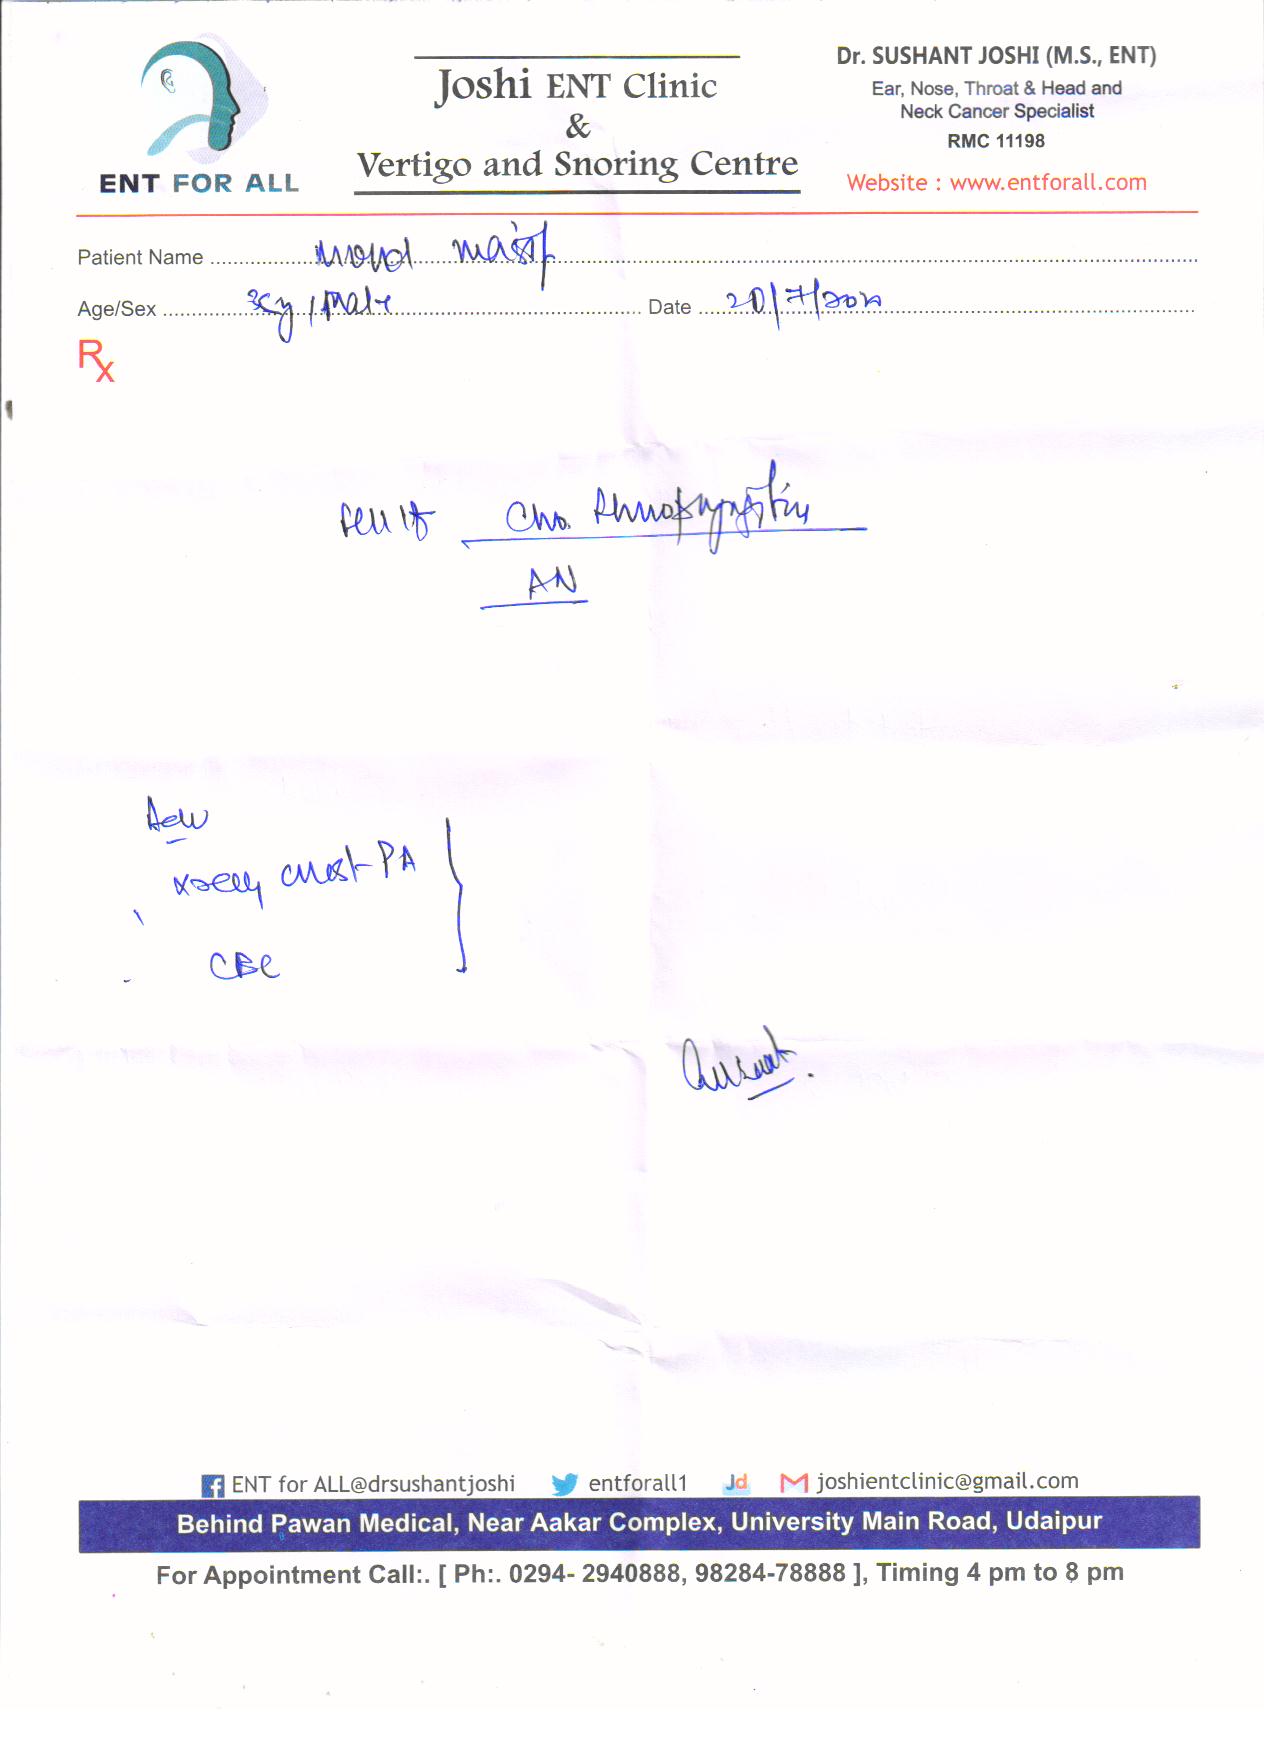 ENT FOR ALL
Joshi ENT Clinic
&
Vertigo and Snoring Centre
Dr. SUSHANT JOSHI (M.S., ENT)
Ear, Nose, Throat & Head and
Neck Cancer Specialist
RMC 11198
Website : www.entforall.com
Patient Name
Age/Sex male Date 20/7/
Rx
AN
Adv
chest PA
CBC
ENT for ALL@drsushantjoshi entforall1 Jd joshientclinic@gmail.com
Behind Pawan Medical, Near Aakar Complex, University Main Road, Udaipur
For Appointment Call:. [ Ph:. 0294- 2940888, 98284-78888 ], Timing 4 pm to 8 pm